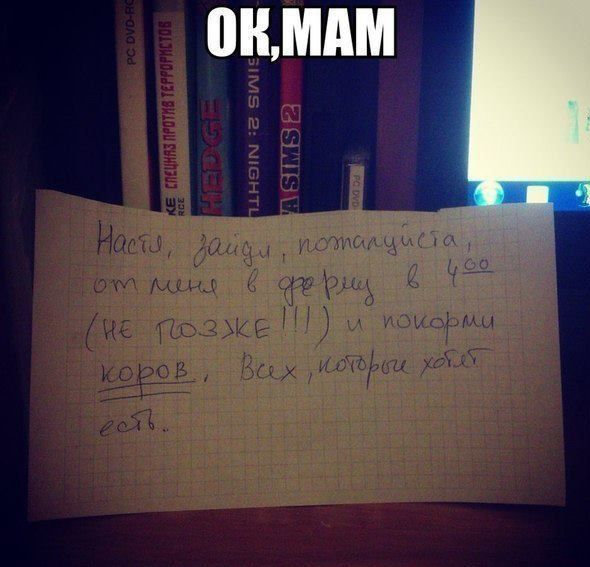 ОК,МАМ
PC DVD-RO
СПЕЦНАЗ ПРОТИВ ТЕРРОРИСТОВ
HEDGE
SIMS 2: NIGHTL
SIMS 2
PC DVD
Настя, зайди, пожалуйста,
от меня в ферму в 4⁰⁰
(НЕ ПОЗЖЕ!!!) и покорми
коров. Всех, которые хотят
есть.